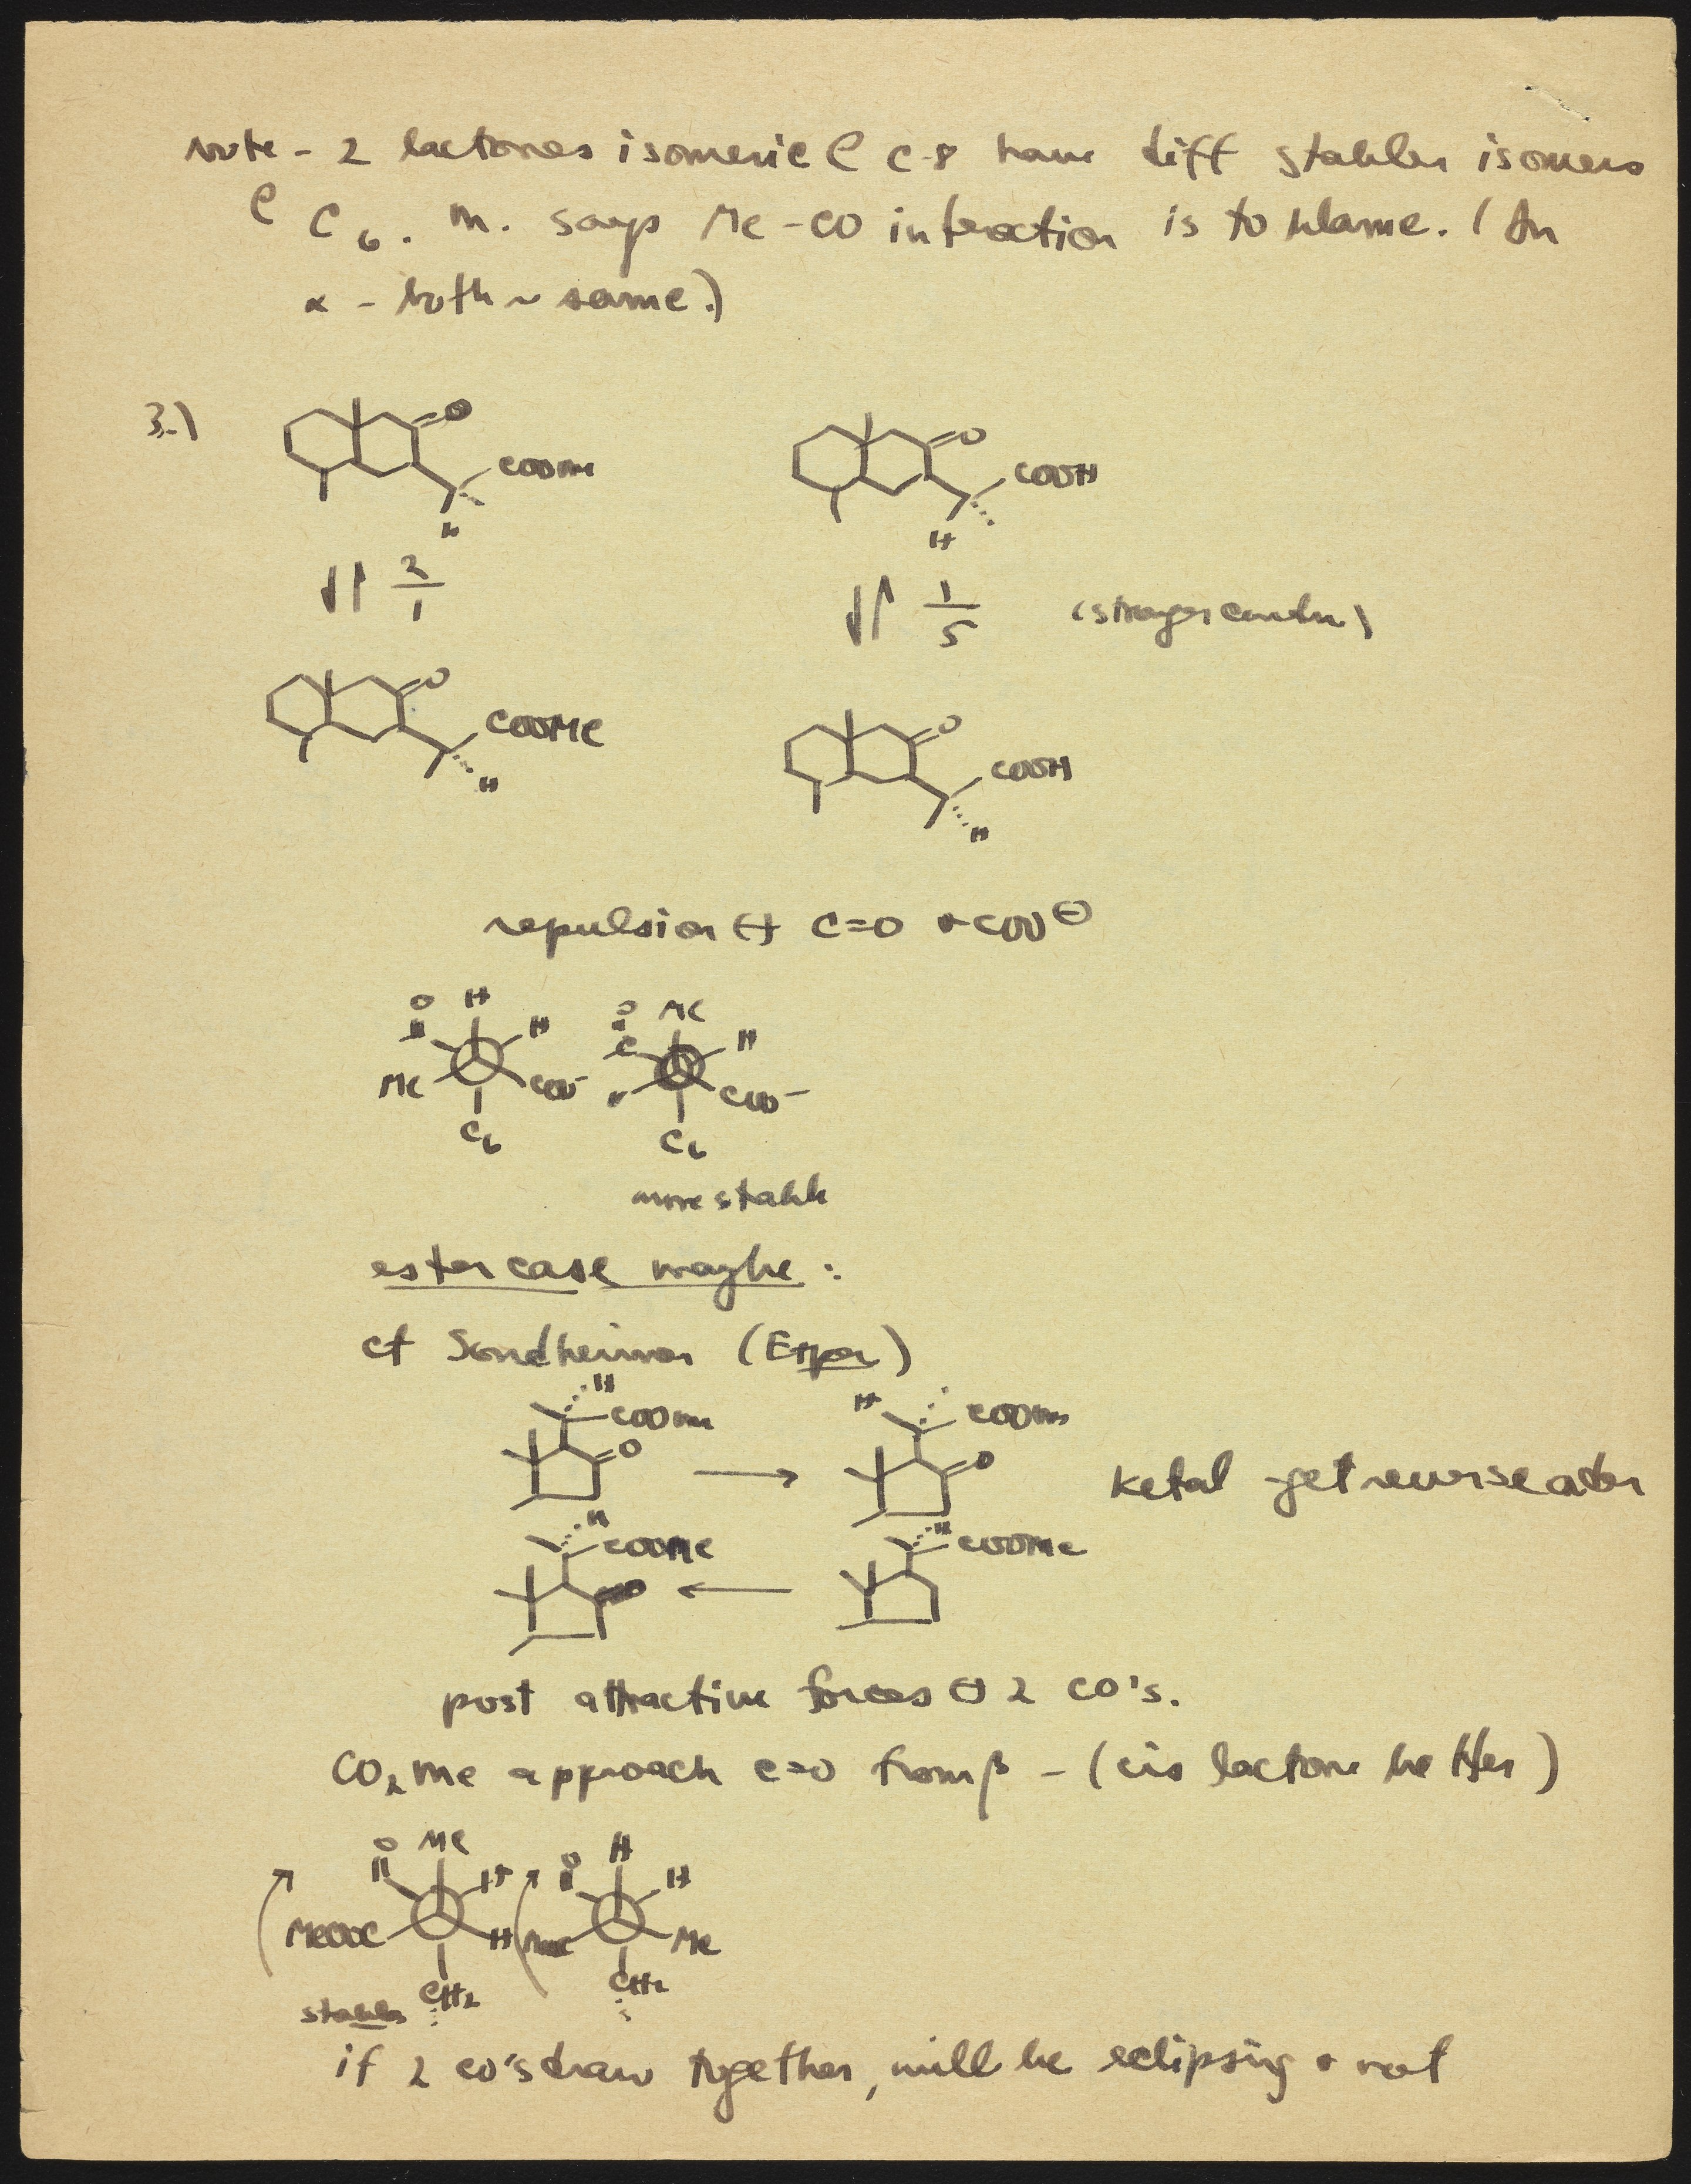 note - 2 lactones isomeric @ C-8 have diff stabler isomers
@ C6. M. says Me-CO interaction is to blame. (In
α - both ~ same.)
3.)
O
COOMe
H
O
COOH
H
2/1
1/5
O
COOMe
H
O
COOH
H
repulsion ↔ C=O + COO⊖
O H H
Me COO-
C6
O Me H
C H COO-
C6
more stable
ester case maybe :
cf Sondheimer (Exper)
H COOMe
O
→
H COOMe
O
Ketal get reverse
H COOMe
O
←
H COOMe
post attractive forces ↔ 2 CO's.
CO2Me approach C=O from β - (cis lactone better)
O Me H
MeOOC H
CH2
stabler
O H H
Me
CH2
if 2 CO's draw together, will be eclipsing + not